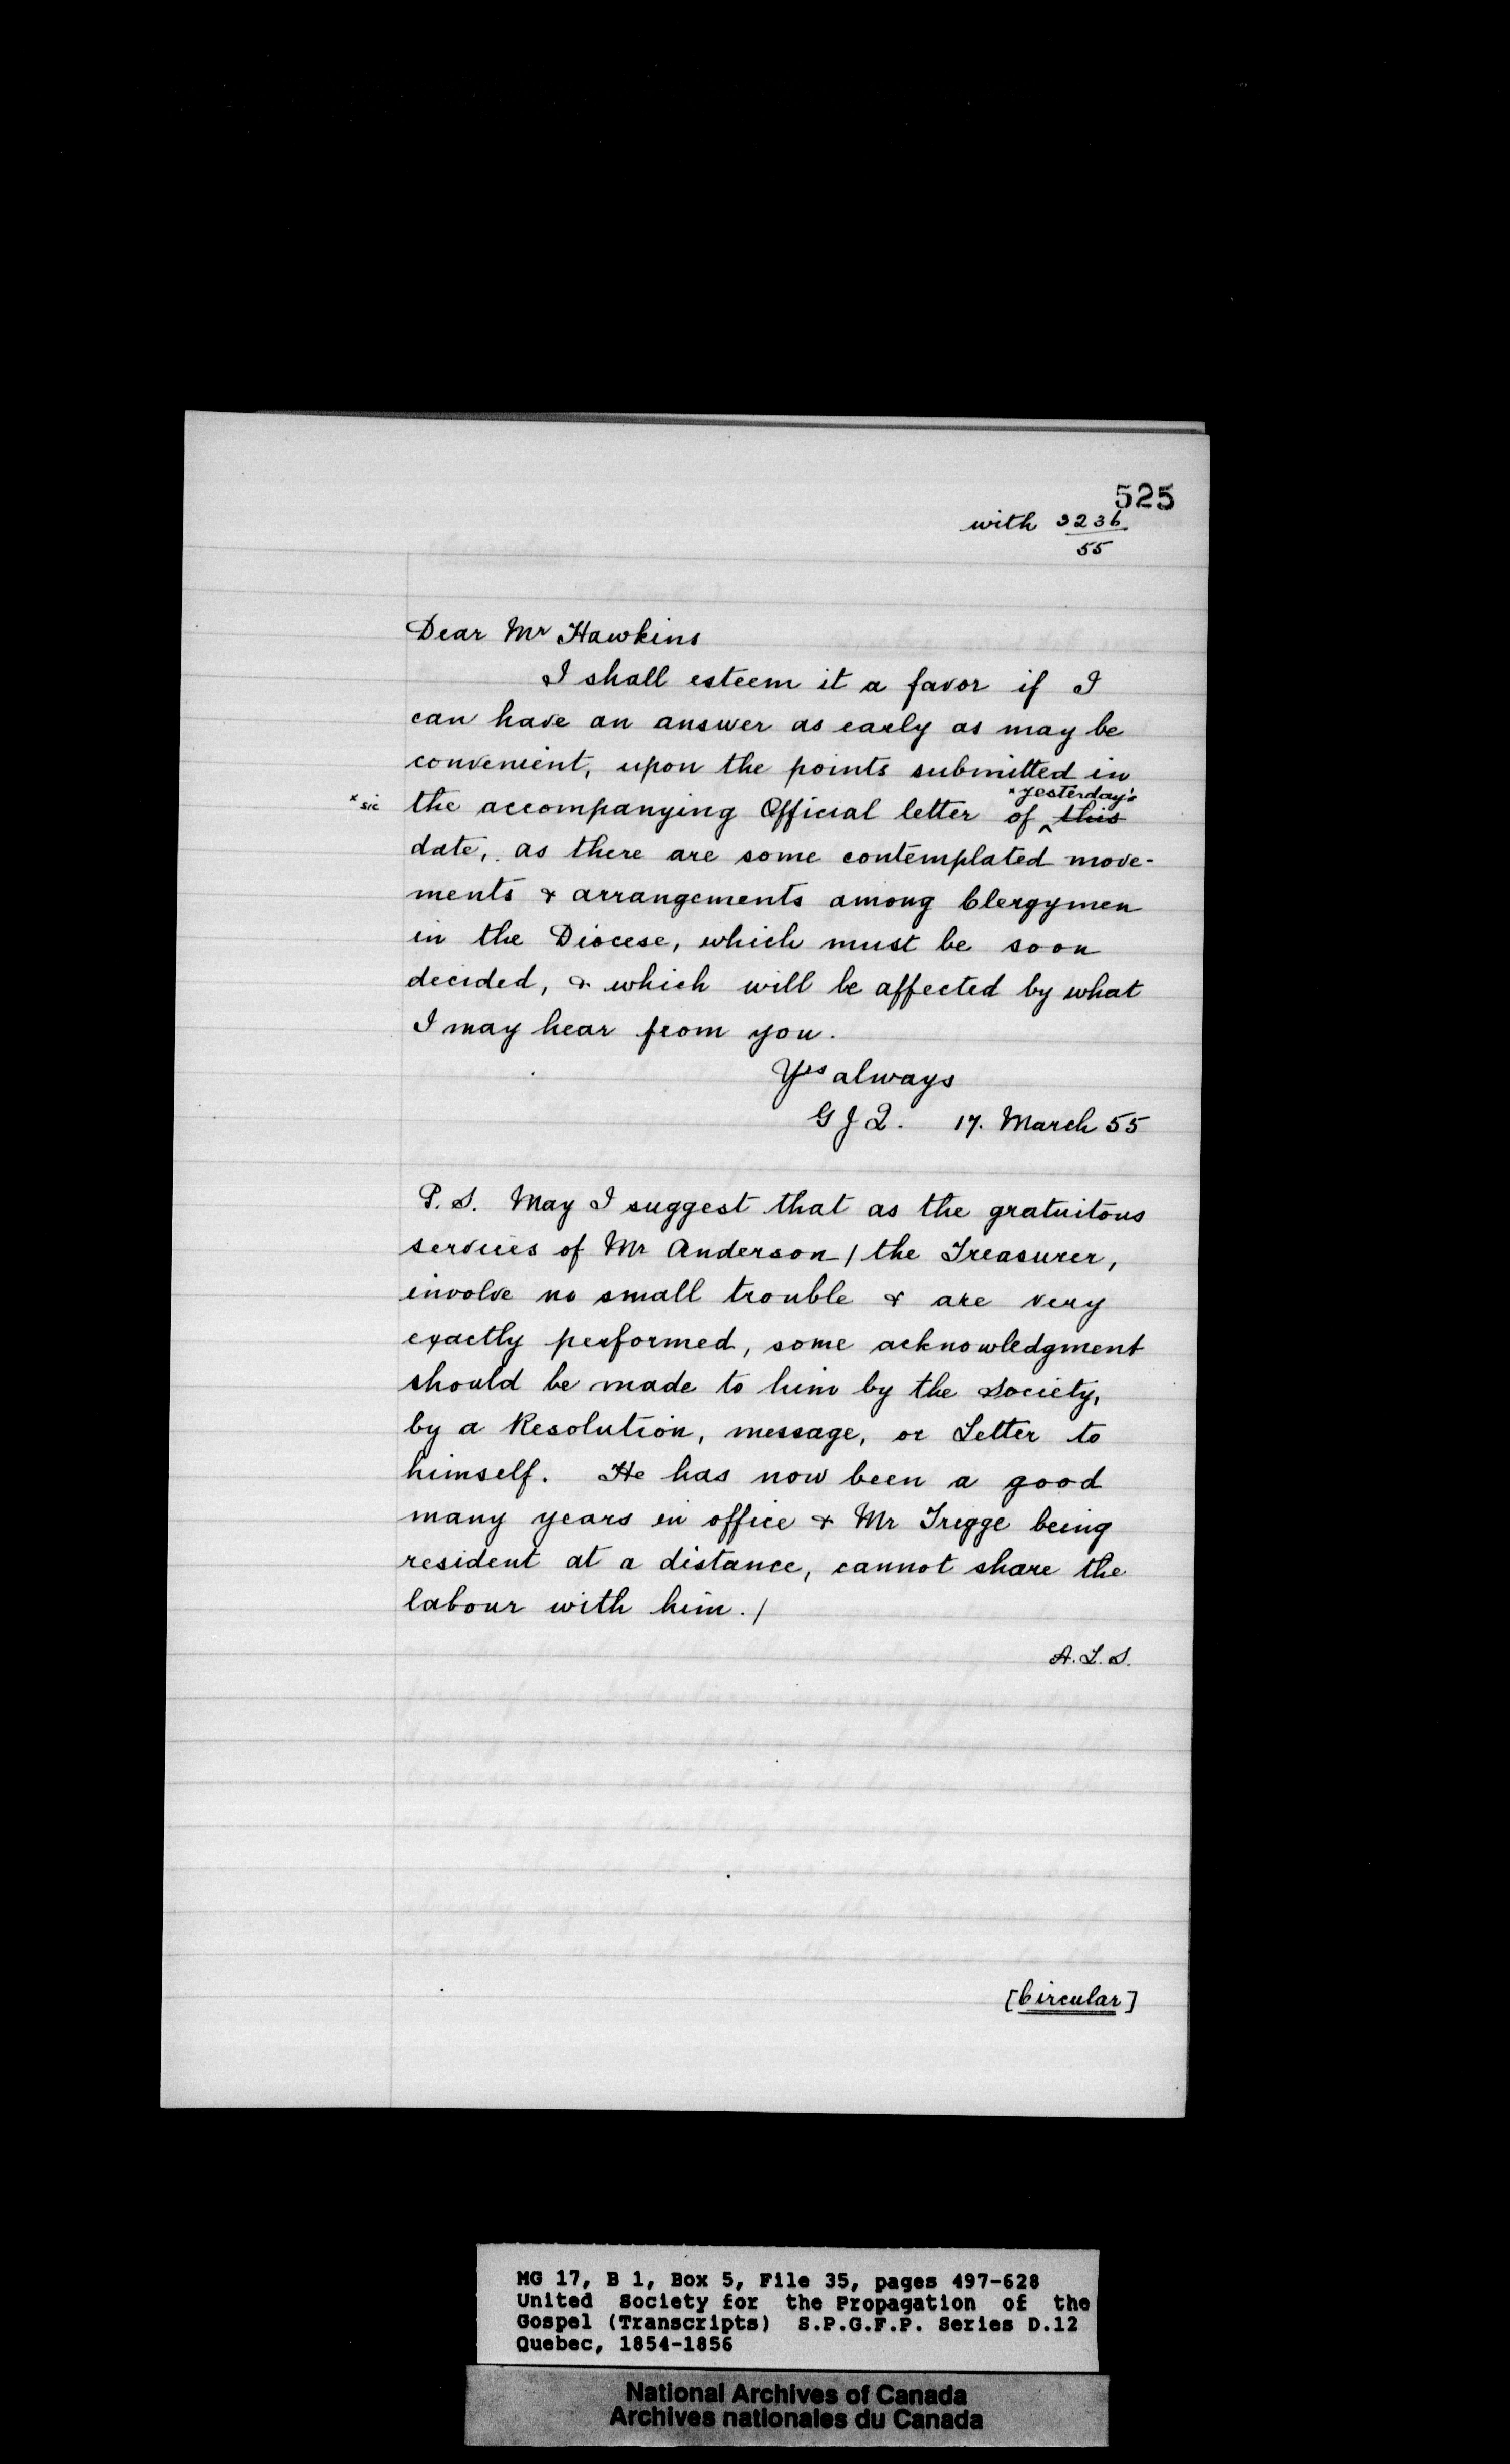 525
with 3236
55
Dear Mr Hawkins
I shall esteem it a favor if I
can have an answer as early as may be
convenient, upon the points submitted in
x yesterday's
x sic the accompanying Official letter of ^ this
date, as there are some contemplated move-
ments & arrangements among Clergymen
in the Diocese, which must be soon
decided, & which will be affected by what
I may hear from you.
Yrs always
G J Q. 17. March 55
P. S. May I suggest that as the gratuitous
services of Mr Anderson / the Treasurer,
involve no small trouble & are very
exactly performed, some acknowledgment
should be made to him by the Society,
by a Resolution, message, or Letter to
himself. He has now been a good
many years in office & Mr Trigge being
resident at a distance, cannot share the
labour with him. /
A. L. S.
[Circular]
MG 17, B 1, Box 5, File 35, pages 497-628
United Society for the Propagation of the
Gospel (Transcripts) S.P.G.F.P. Series D.12
Quebec, 1854-1856
National Archives of Canada
Archives nationales du Canada